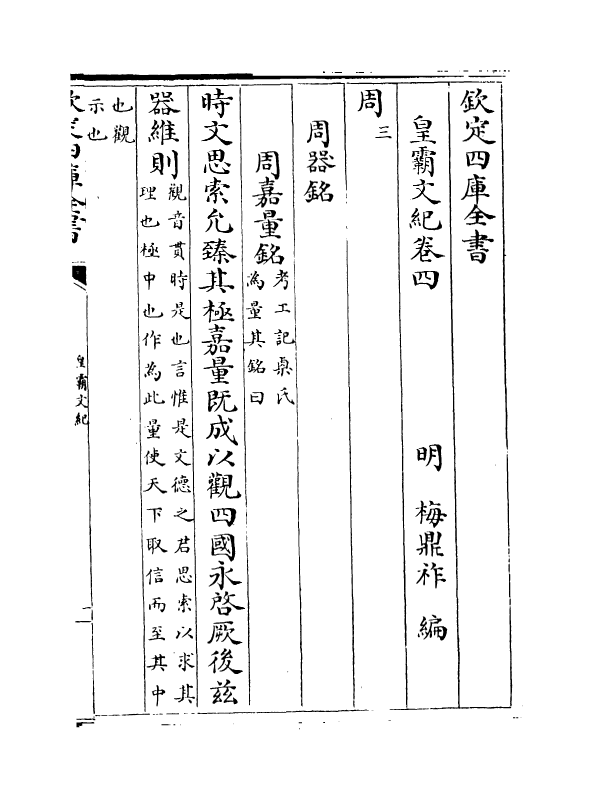 欽定四庫全書
皇霸文紀卷四
明 梅鼎祚 編
周三
周器銘
周嘉量銘 考工記㮚氏
為量其銘曰
時文思索允臻其極嘉量既成以觀四國永啓厥後兹
器維則 觀音貫時是也言惟是文德之君思索以求其
理也極中也作為此量使天下取信而至其中
也觀
示也
欽定四庫全書
皇霸文紀
一